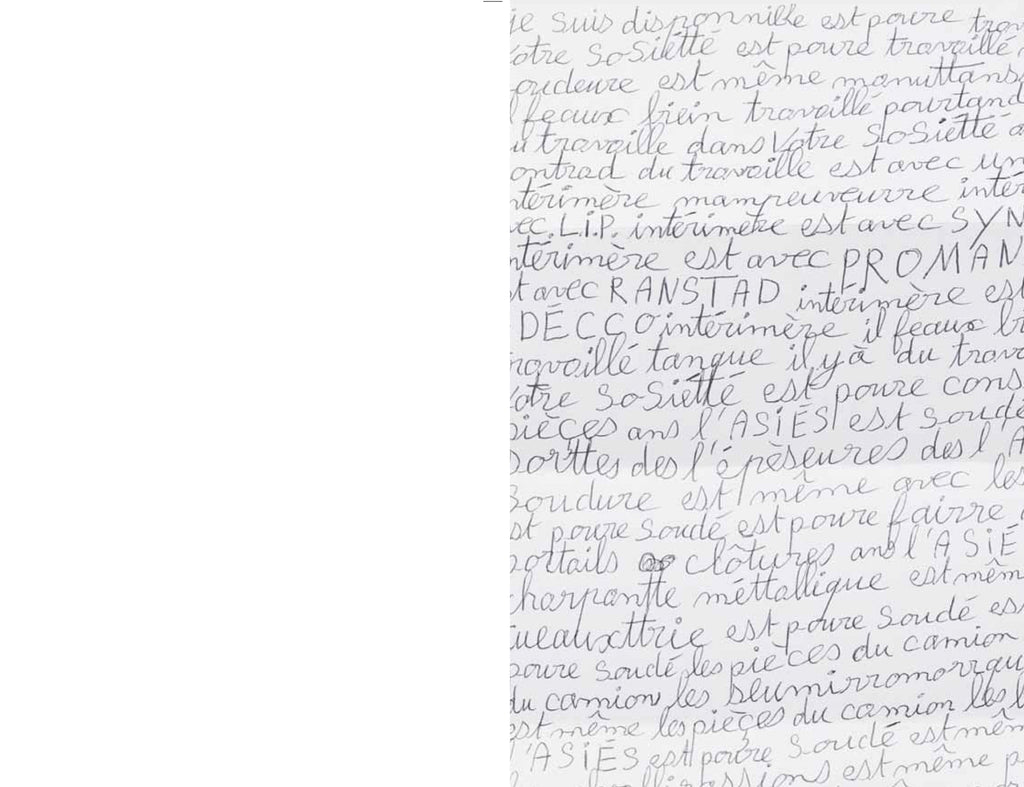 je suis disponnible est poure trav
otre SoSiétté est poure travaillé
oudeure est même manuttans
l feaux biein travaillé pourtand
u travaille dans Votre SoSiétté a
ontrad du travaille est avec un
ntérimère mampreuveurre intér
ec L.I.P. intérimère est avec SYN
ntérimère est avec PROMAN
t avec RANSTAD intérimère est
DÉCCO intérimère il feaux bi
ravaillé tanque il y à du trava
otre SoSiétté est poure cons
pièçes ans l'ASiÉS est Soudé
sorttes des l'épèseures des l'A
Soudure est même avec les
st poure Soudé est poure fairre
portails clôtures ans l'ASiÉ
harpantte méttallique est mêm
ueauxttrie est poure Soudé es
poure Soudé les pièçes du camion
du camion les Seumirromorrqu
est même les pièçes du camion les
l'ASiÉS est poure Soudé est mêm
ssions est même p